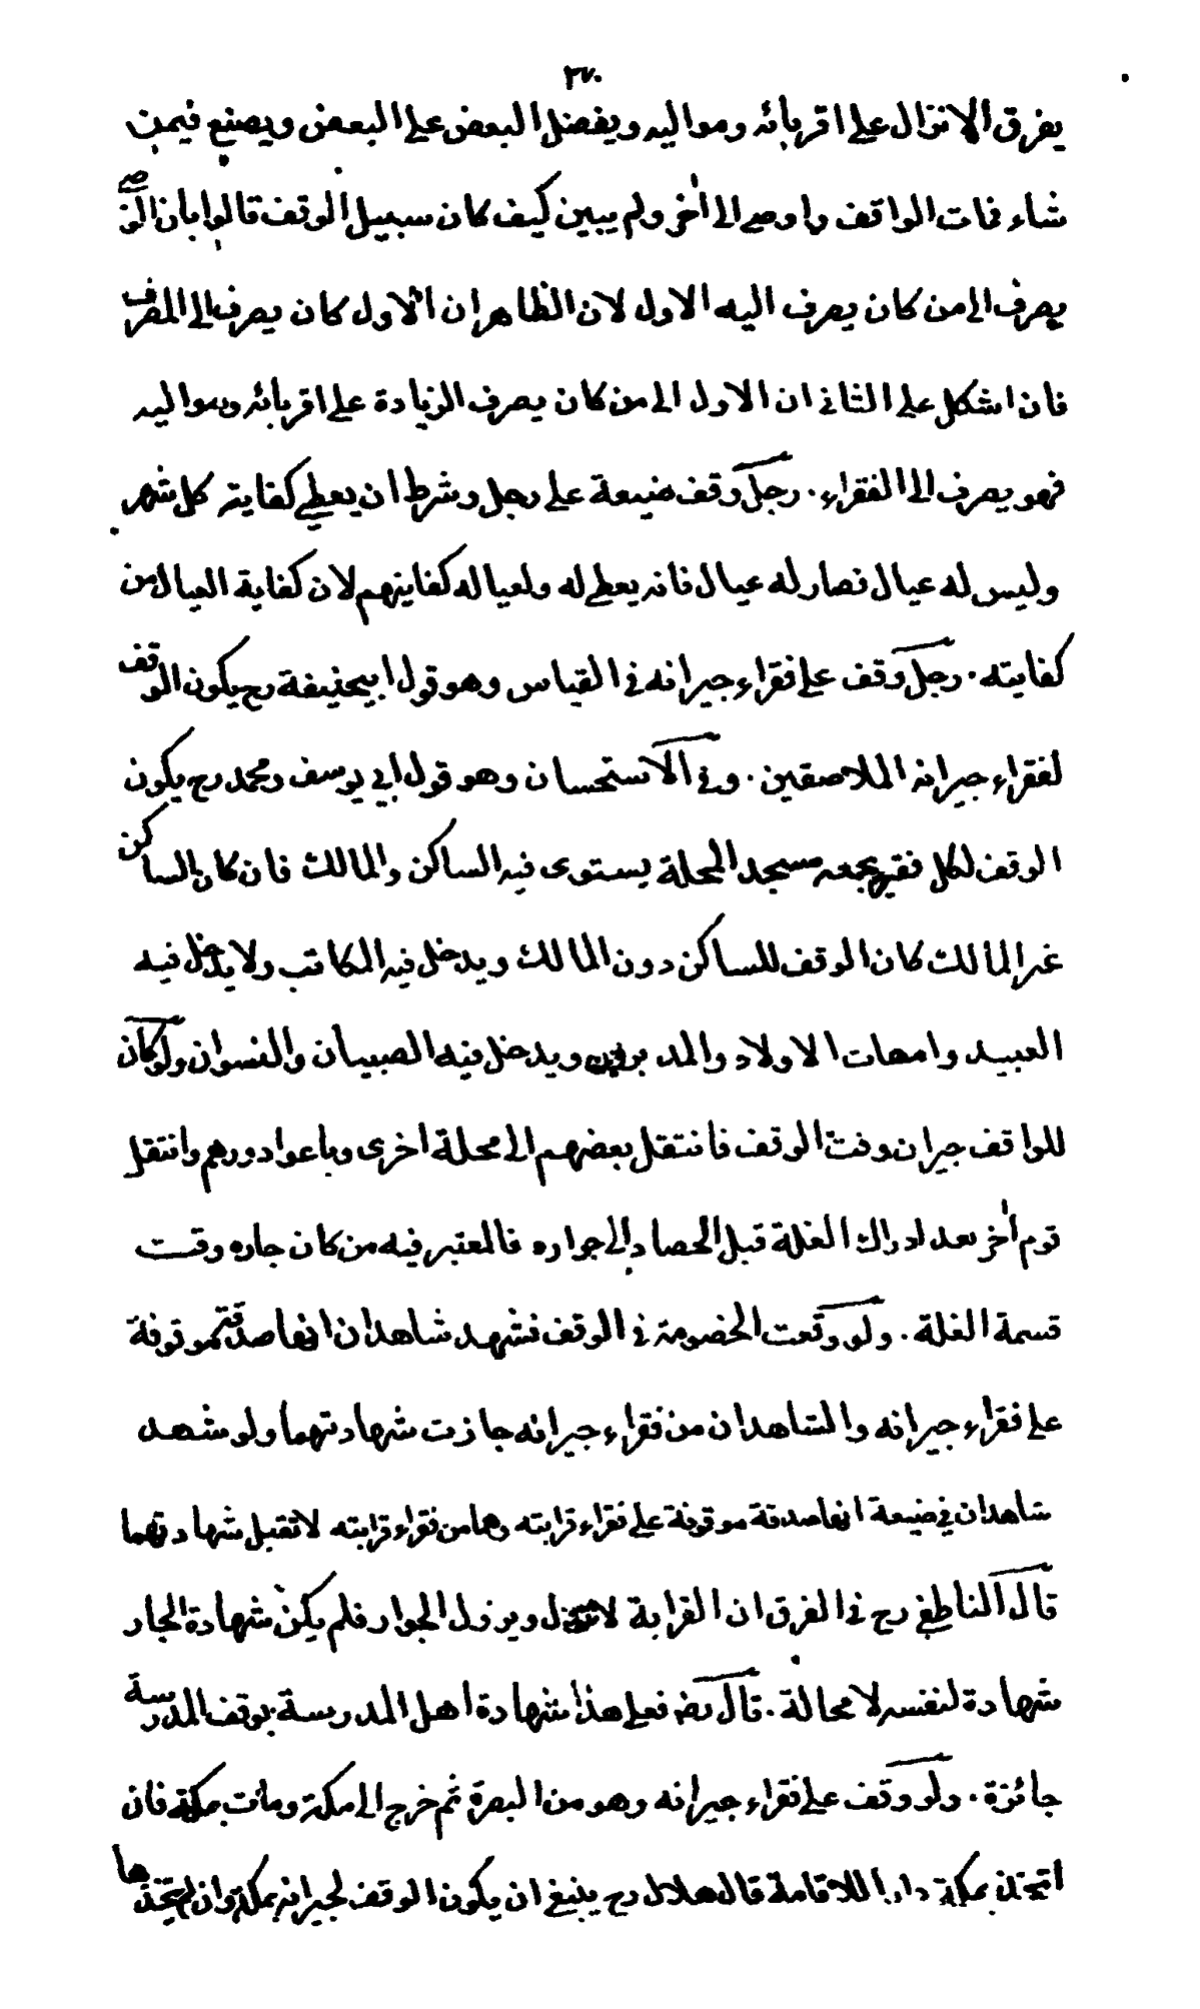 ٣٧٠
يفرق الانزال على اقربائه ومواليه ويفضل البعض على البعض ويصنع فيمن
شاء فمات الواقف واوصى الى اٰخر ولم يبين كيف كان سبيل الوقف قالوا بان الوصى
يصرف الى من كان يصرف اليه الاول لان الظاهر ان الاول كان يصرف الى المصرف
فان اشكل على الثانى ان الاول الى من كان يصرف الزيادة على اقربائه ومواليه
فهو يصرف الى الفقراء . رجل وقف ضيعة على رجل وشرط ان يعطي كفايته كل شهر
وليس له عيال فصار له عيال فانه يعطى له ولعياله كفايتهم لان كفاية العيال من
كفايته . رجل وقف على فقراء جيرانه فى القياس وهو قول ابيحنيفة رح يكون الوقف
لفقراء جيرانه الملاصقين . وفى الاستحسان وهو قول ابي يوسف ومحمد رح يكون
الوقف لكل فقير يجمعه مسجد المحلة يستوى فيه الساكن والمالك فان كان الساكن
غير المالك كان الوقف للساكن دون المالك ويدخل فيه المكاتب ولا يدخل فيه
العبيد وامهات الاولاد والمدبرون ويدخل فيه الصبيان والنسوان ولو كان
للواقف جيران وقت الوقف فانتقل بعضهم الى محلة اخرى وباعوا دورهم وانتقل
قوم اٰخر بعد ادراك الغلة قبل الحصاد الى جواره فالمعتبر فيه من كان جاره وقت
قسمة الغلة . ولو وقعت الخصومة فى الوقف فشهد شاهدان انها صدقة موقوفة
على فقراء جيرانه والشاهدان من فقراء جيرانه جازت شهادتهما ولو شهد
شاهدان في ضيعة انها صدقة موقوفة على فقراء قرابته وهما من فقراء قرابته لا تقبل شهادتهما
قال الناطفي رح فى الفرق ان القرابة لا تزول ويزول الجوار فلم يكن شهادة الجار
شهادة لنفسه لا محالة . قال رضـ فعلى هذا شهادة اهل المدرسة بوقف المدرسة
جائزة . ولو وقف على فقراء جيرانه وهو من البصرة ثم خرج الى مكة ومات بمكة فان
اتخذ بمكة دارا للاقامة قال هلال رح ينبغى ان يكون الوقف لجيرانه بمكة وان لم يتخذها